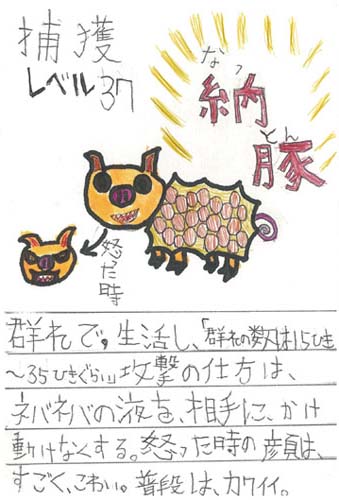 捕獲
レベル37
なっ
納
とん
豚
怒った時
群れで。生活し、「群れの数は15ひき
～35ひきぐらい」攻撃の仕方は、
ネバネバの液を、相手に、かけ
動けなくする。怒った時の顔は、
すごく、こわい。普段は、カワイイ。